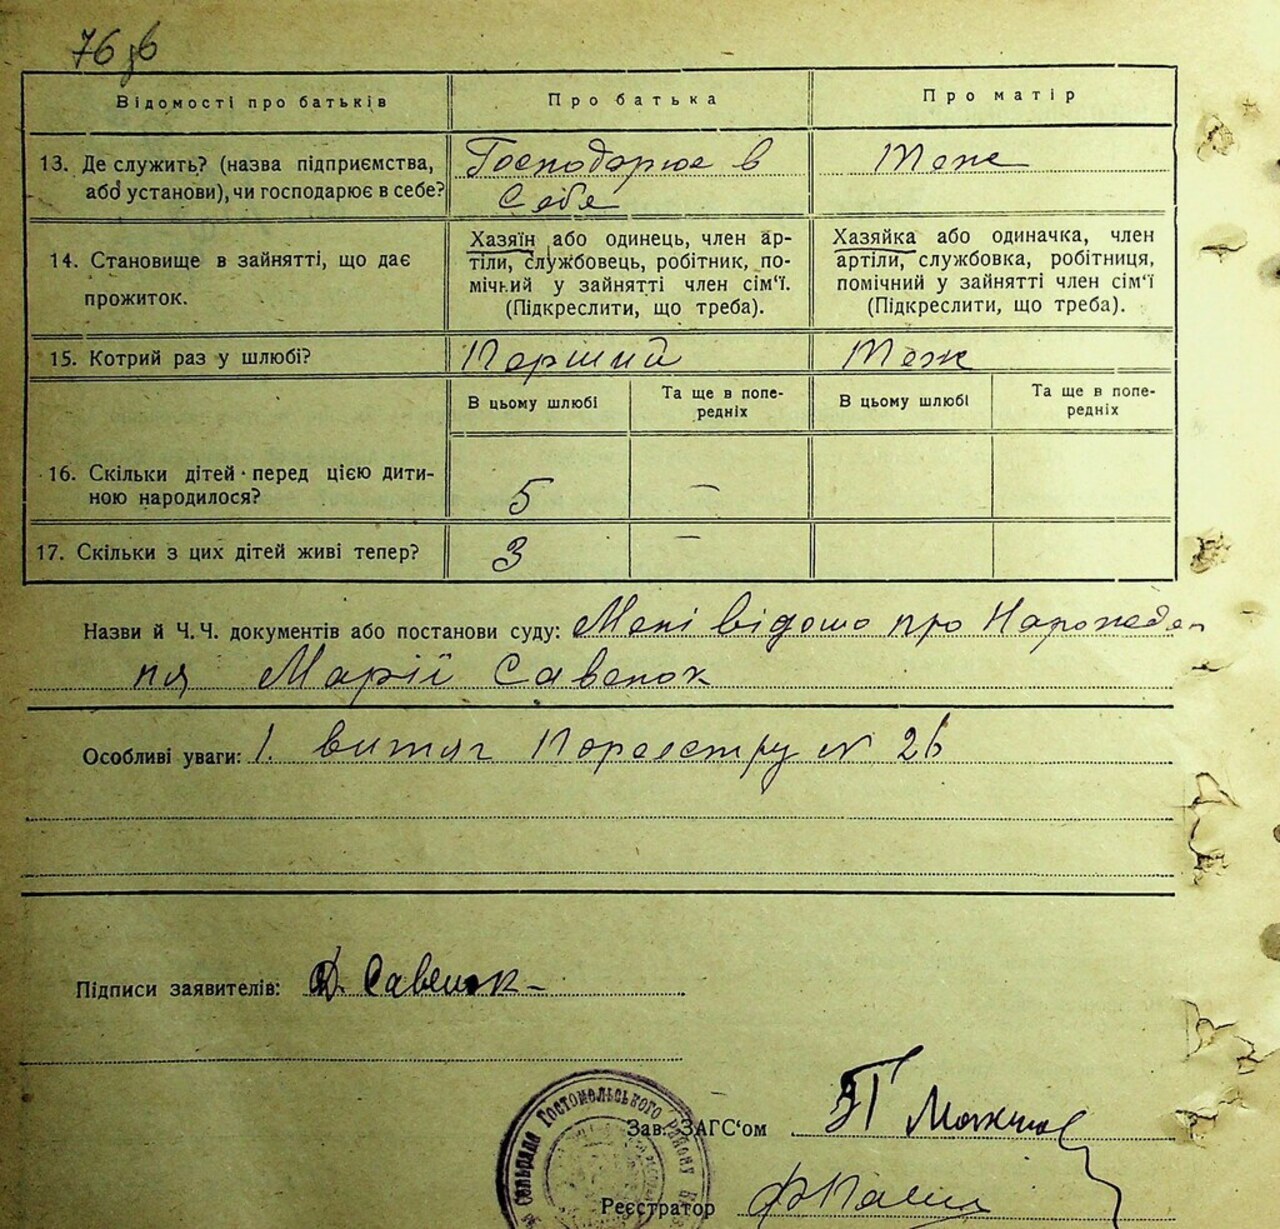 76 зв
Відомості про батьків
Про батька
Про матір
13. Де служить? (назва підприємства, або установи), чи господарює в себе?
Господарює в
Себе
Теж
14. Становище в зайнятті, що дає прожиток.
Хазяїн або одинець, член ар-
тіли, службовець, робітник, по-
мічний у зайнятті член сім‘ї.
(Підкреслити, що треба).
Хазяйка або одиначка, член
артіли, службовка, робітниця,
помічний у зайнятті член сім‘ї
(Підкреслити, що треба).
15. Котрий раз у шлюбі?
Перший
Теж
В цьому шлюбі
Та ще в попе-
редніх
В цьому шлюбі
Та ще в попе-
редніх
16. Скільки дітей перед цією дити-
ною народилося?
5
—
17. Скільки з цих дітей живі тепер?
3
—
Назви й Ч.Ч. документів або постанови суду: Мені відомо про Народжен
ня Марії Савенок
Особливі уваги: 1. витяг Пореєстру № 26
Підписи заявителів: Д. Савенок
Сельрада Гостомельського району
Зав. ЗАГС‘ом
Реєстратор